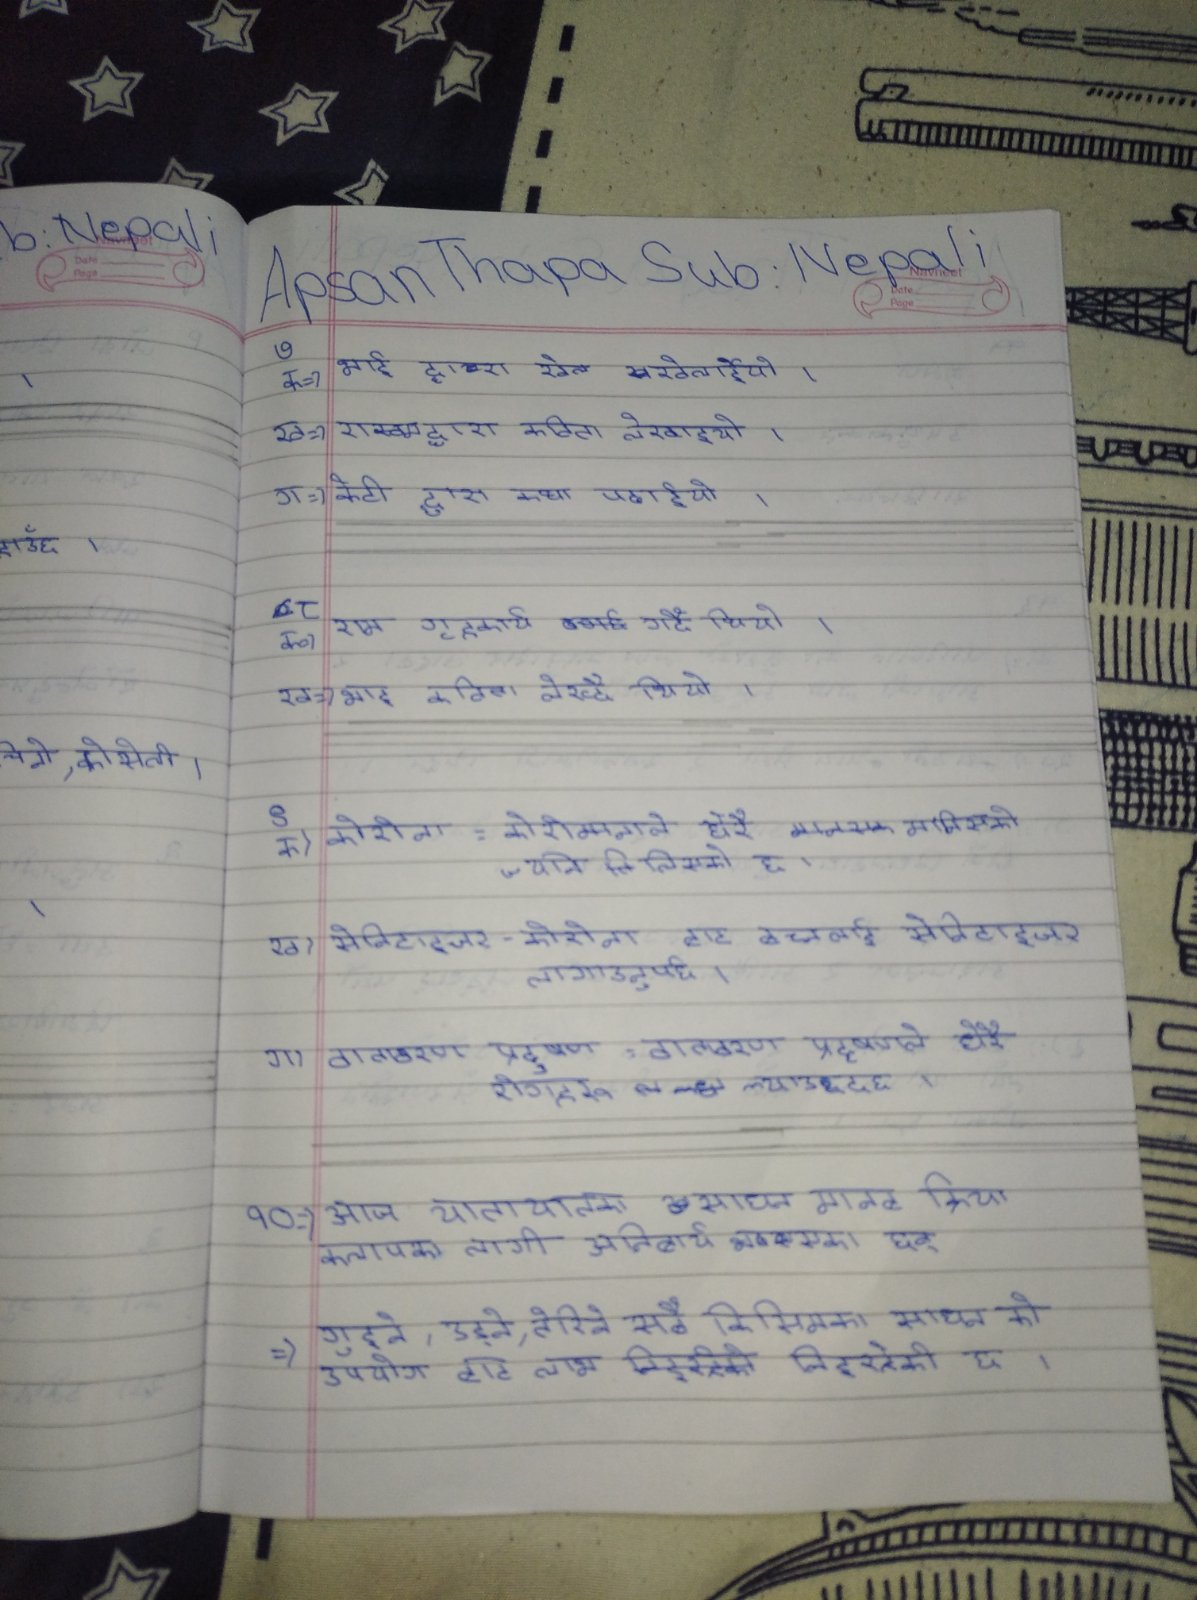 b: Nepali
Navneet
Date
Page
।
हाउँछ ।
, कोसेली ।
।
Apsan Thapa Sub: Nepali
Navneet
Date
Page
७
क=) भाई द्वारा खेल खेलाईयो ।
ख=) राखमद्वारा कविता लेखाइयो ।
ग=) केटी द्वारा कथा पढाईयो ।
८
क=) राम गृहकार्य गर्दै थियो ।
ख=) भाइ कविता लेख्दै थियो ।
९
क) कोरोना = कोरोनाले धेरै मानिसको
ज्यान लिसको छ ।
ख) सेनिटाइजर - कोरोना बाट बच्नलाई सेनिटाइजर
लागाउनुपर्छ ।
ग) वातावरण प्रदुषण = वातवरण प्रदुषणले धेरै
रोगहरू ल्याउछ ।
१०=) आज यातायातका साधन मानव क्रिया
कलापका लागी अनिवार्य भएका छन्
=) गुड्ने, उड्ने, तेरिने सबै किसिमका साधन को
उपयोग बाट लाभ छ ।